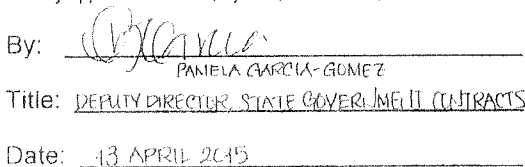 By:
PAMELA GARCIA-GOMEZ
Title: DEPUTY DIRECTOR, STATE GOVERNMENT CONTRACTS
Date: 13 APRIL 2015